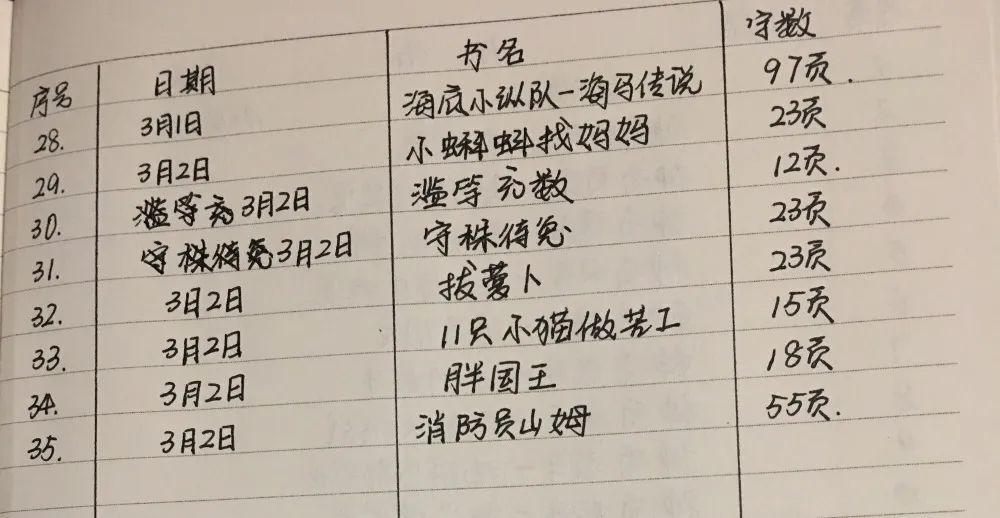 序号 日期 书名 字数
28. 3月1日 海底小纵队—海马传说 97页.
29. 3月2日 小蝌蚪找妈妈 23页
30. 滥竽充 3月2日 滥竽充数 12页.
31. 守株待兔 3月2日 守株待兔 23页
32. 3日2日 拔萝卜 23页
33. 3月2日 11只小猫做苦工 15页
34. 3月2日 胖国王 18页
35. 3月2日 消防员山姆 55页.